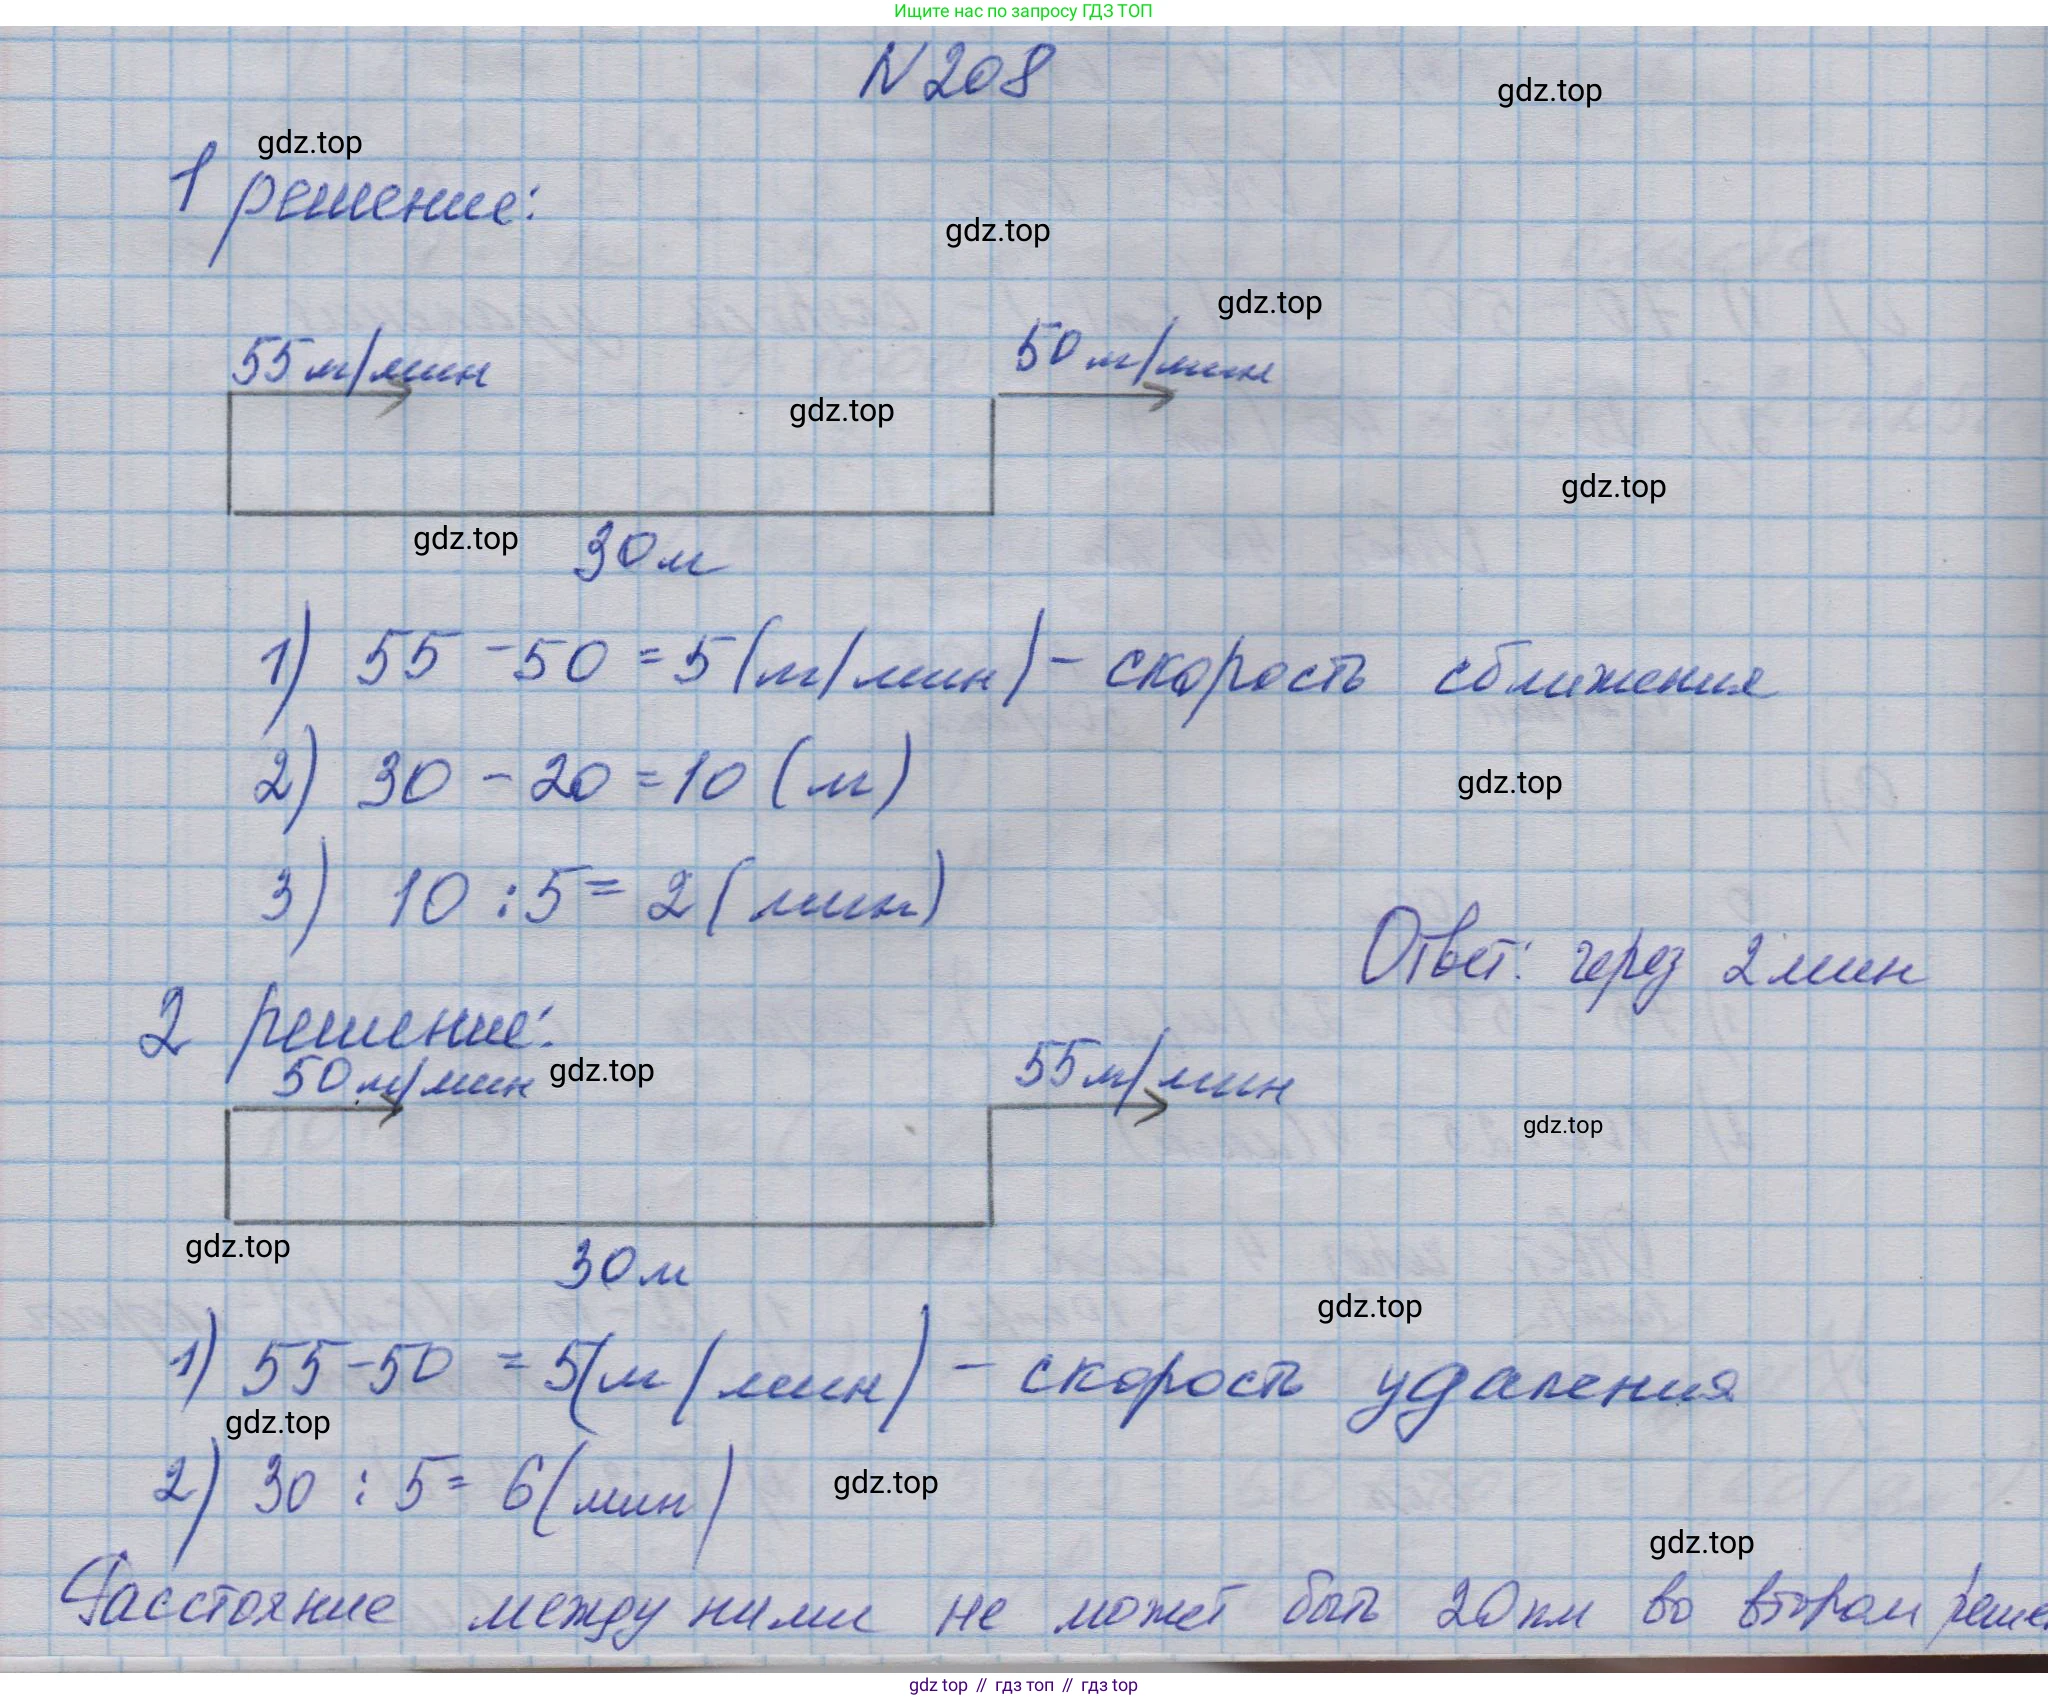 Ищите нас по запросу ГДЗ ТОП
N 208
gdz.top
gdz.top
1 решение:
gdz.top
gdz.top
55 м/мин
50 м/мин
gdz.top
gdz.top
gdz.top
30 м
1) 55 - 50 = 5 (м/мин) - скорость сближения
2) 30 - 20 = 10 (м)
gdz.top
3) 10 : 5 = 2 (мин)
Ответ: через 2 мин
2 решение:
50 м/мин
gdz.top
55 м/мин
gdz.top
gdz.top
30 м
gdz.top
1) 55 - 50 = 5 (м/мин) - скорость удаления
gdz.top
2) 30 : 5 = 6 (мин)
gdz.top
gdz.top
Расстояние между ними не может быть 20 км во втором реше
gdz top // гдз топ // гдз top